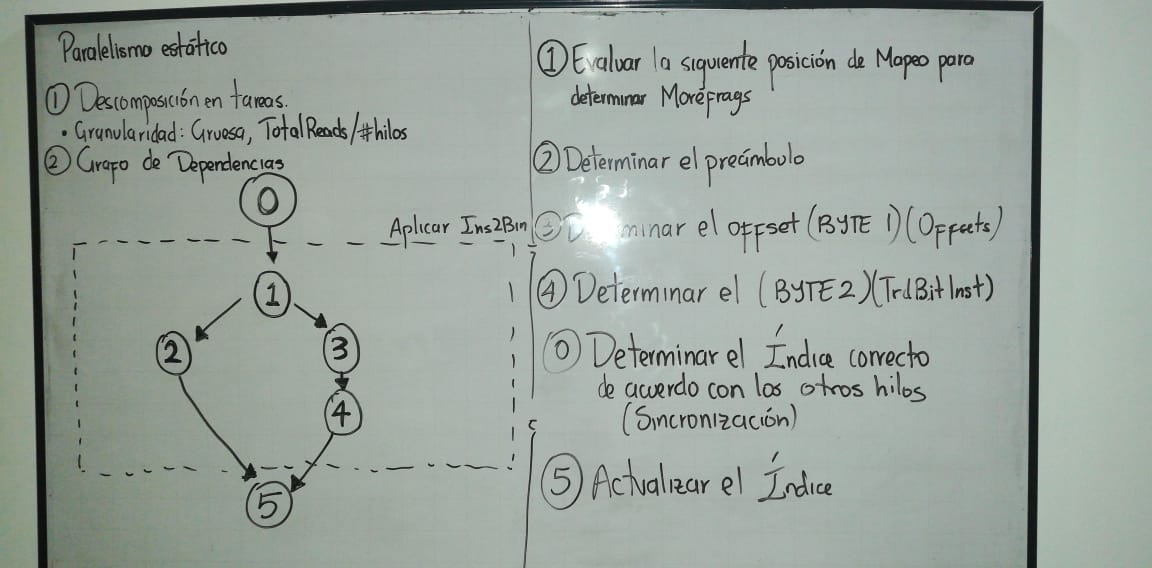 Paralelismo estático
① Descomposición en tareas.
• Granularidad: Gruesa, TotalReads/#hilos
② Grafo de Dependencias
0
Aplicar Ins2Bin
1
2
3
4
5
① Evaluar la siguiente posición de Mapeo para
determinar MoreFrags
② Determinar el preámbulo
③ el offset (BYTE 1)(Offsets)
④ Determinar el (BYTE2)(TrdBitInst)
⓪ Determinar el Índice correcto
de acuerdo con los otros hilos
(Sincronización)
⑤ Actualizar el Índice